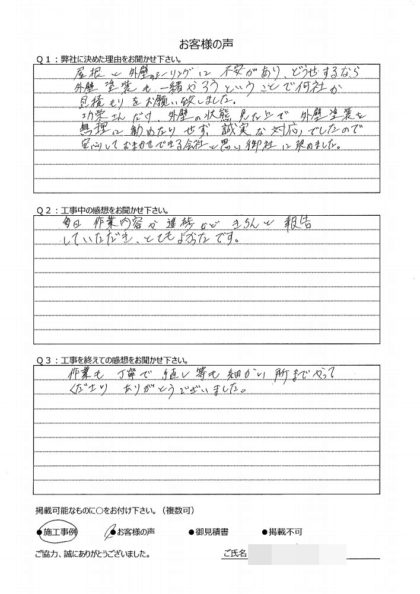 お客様の声
Q1：弊社に決めた理由をお聞かせ下さい。
屋根と外壁のシーリングに不安があり、どうせするなら
外壁塗装も一緒にやろうということで何社か
見積もりをお願い致しました。
さんだけ、外壁の状態見た上で外壁塗装を
無理に勧めたりせず誠実な対応でしたので
安心しておまかせできる会社と思い御社に決めました。
Q2：工事中の感想をお聞かせ下さい。
毎日作業内容や進捗などきちんと報告
していただき、とてもよかったです。
Q3：工事を終えての感想をお聞かせ下さい。
作業も丁寧で直し等も細かい所までやって
くださり ありがとうございました。
掲載可能なものに○をお付け下さい。（複数可）
●施工事例 ●お客様の声 ●御見積書 ●掲載不可
ご協力、誠にありがとうございました。 ご氏名